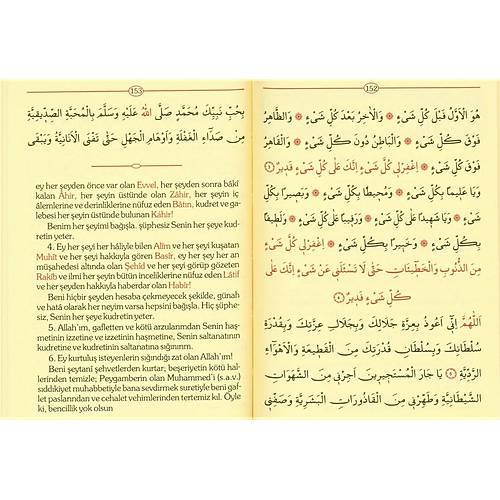 152
هُوَ الْاَوَّلُ قَبْلَ كُلِّ شَىْءٍ ❁ وَالْاٰخِرُ بَعْدَ كُلِّ شَىْءٍ ❁ وَالظَّاهِرُ
فَوْقَ كُلِّ شَىْءٍ ❁ وَالْبَاطِنُ دُونَ كُلِّ شَىْءٍ ❁ وَالْقَاهِرُ
فَوْقَ كُلِّ شَىْءٍ ❁ اِغْفِرْلِى كُلَّ شَىْءٍ اِنَّكَ عَلٰى كُلِّ شَىْءٍ قَدِيرٌ
وَيَا عَلِيمًا بِكُلِّ شَىْءٍ ❁ وَمُحِيطًا بِكُلِّ شَىْءٍ ❁ وَبَصِيرًا بِكُلِّ
شَىْءٍ ❁ وَيَا شَهِيدًا عَلٰى كُلِّ شَىْءٍ ❁ وَرَقِيبًا عَلٰى كُلِّ شَىْءٍ ❁ وَلَطِيفًا
بِكُلِّ شَىْءٍ ❁ وَخَبِيرًا بِكُلِّ شَىْءٍ ❁ اِغْفِرْلِى كُلَّ شَىْءٍ
مِنَ الذُّنُوبِ وَالْخَطِيئَاتِ حَتّٰى لَا تَسْئَلَنِى عَنْ شَىْءٍ اِنَّكَ عَلٰى
كُلِّ شَىْءٍ قَدِيرٌ
اَللّٰهُمَّ اِنِّى اَعُوذُ بِعِزَّةِ جَلَالِكَ وَبِجَلَالِ عِزَّتِكَ وَبِقُدْرَةِ
سُلْطَانِكَ وَبِسُلْطَانِ قُدْرَتِكَ مِنَ الْقَطِيعَةِ وَالْاَهْوَاءِ
الرَّدِيَّةِ يَا جَارَ الْمُسْتَجِيرِينَ اَجِرْنِى مِنَ الشَّهَوَاتِ
الشَّيْطَانِيَّةِ وَطَهِّرْنِى مِنَ الْقَاذُورَاتِ الْبَشَرِيَّةِ وَصَفِّنِى
153
بِحُبِّ نَبِيِّكَ مُحَمَّدٍ صَلَّى اللّٰهُ عَلَيْهِ وَسَلَّمَ بِالْمَحَبَّةِ الصِّدِّيقِيَّةِ
مِنْ صَدَاءِ الْغَفْلَةِ وَاَوْهَامِ الْجَهْلِ حَتّٰى تَفْنَى الْاَنَانِيَّةُ وَيَبْقٰى
ey her şeyden önce var olan Evvel, her şeyden sonra bâkî
kalan Âhir, her şeyin üstünde olan Zâhir, her şeyin iç
âlemlerine ve derinliklerine nüfuz eden Bâtın, kudret ve ga-
lebesi her şeyin üstünde bulunan Kâhir!
Benim her şeyimi bağışla. şüphesiz Senin her şeye kud-
retin yeter.
4. Ey her şeyi her hâliyle bilen Alîm ve her şeyi kuşatan
Muhît ve her şeyi hakkıyla gören Basîr, ey her şey her an
müşahedesi altında olan Şehîd ve her şeyi görüp gözeten
Rakîb ve ilmi her şeyin bütün inceliklerine nüfuz eden Lâtîf
ve her şeyden hakkıyla haberdar olan Habîr!
Beni hiçbir şeyden hesaba çekmeyecek şekilde, günah
ve hatâ olarak her neyim varsa hepsini bağışla. Hiç şüphe-
siz, Senin her şeye kudretin yeter.
5. Allah'ım, gafletten ve kötü arzulanmdan Senin haş-
metinin izzetine ve izzetinin haşmetine, Senin saltanatının
kudretine ve kudretinin saltanatına sığınırım.
6. Ey kurtuluş isteyenlerin sığındığı zat olan Allah'ım!
Beni şeytanî şehvetlerden kurtar; beşeriyetin kötü hal-
lerinden temizle; Peygamberin olan Muhammed'i (s.a.v.)
sıddikiyet muhabbetiyle bana sevdirmek suretiyle beni gaf-
let paslarından ve cehalet vehimlerinden tertemiz kıl. Öyle
ki, bencillik yok olsun